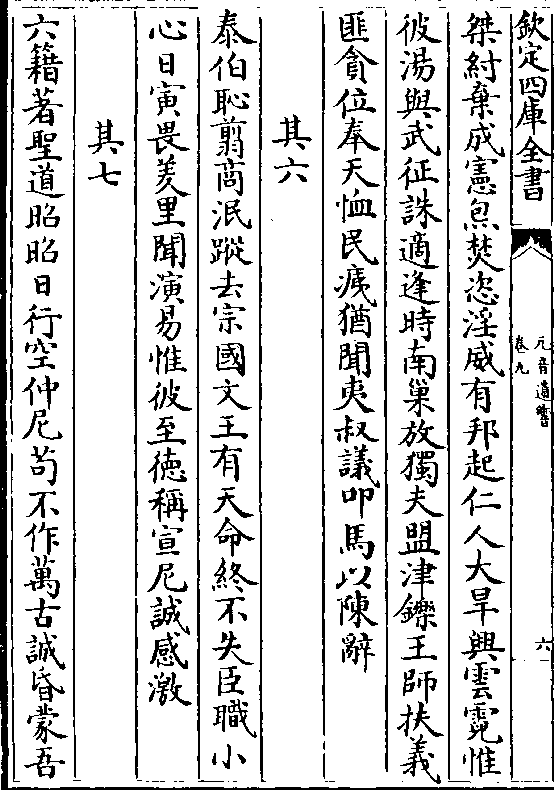 欽定四庫全書
元音遺響
卷九
六
桀紂棄成憲炰焚恣淫威有邦起仁人大旱興雲霓惟
彼湯與武征誅適逢時南巢放獨夫盟津鑠王師扶義
匪貪位奉天恤民疧猶聞夷叔議叩馬以陳辭
其六
泰伯恥翦商泯蹤去宗國文王有天命終不失臣職小
心日寅畏羑里聞演易惟彼至德稱宣尼誠感激
其七
六籍著聖道昭昭日行空仲尼茍不作萬古誠昏蒙吾